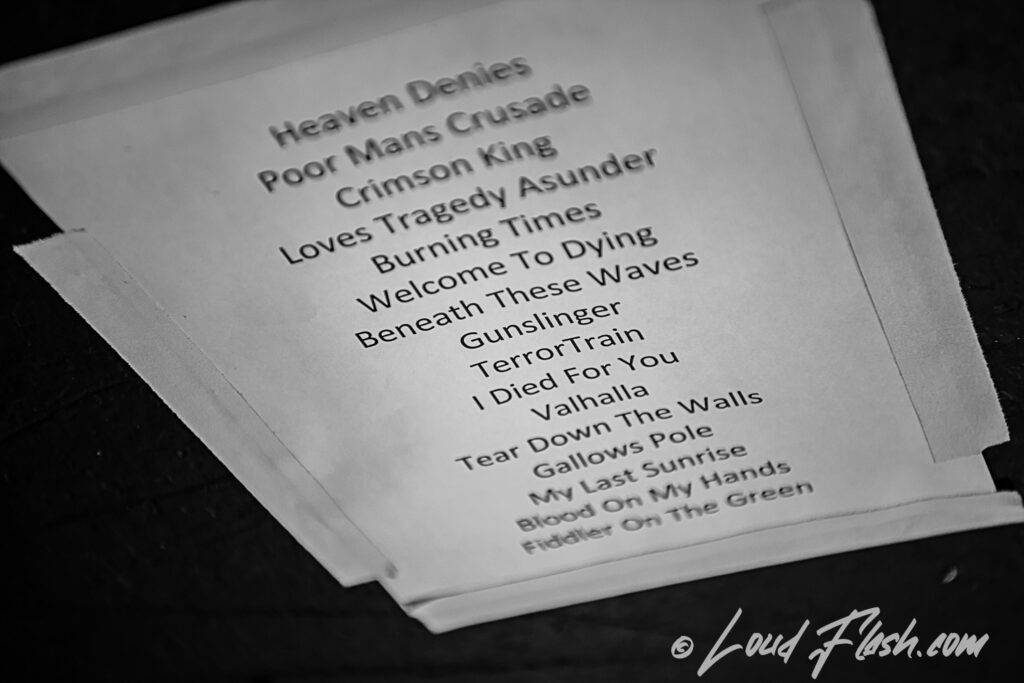 Heaven Denies
Poor Mans Crusade
Crimson King
Loves Tragedy Asunder
Burning Times
Welcome To Dying
Beneath These Waves
Gunslinger
TerrorTrain
I Died For You
Valhalla
Tear Down The Walls
Gallows Pole
My Last Sunrise
Blood On My Hands
Fiddler On The Green
© Loud Flash.com